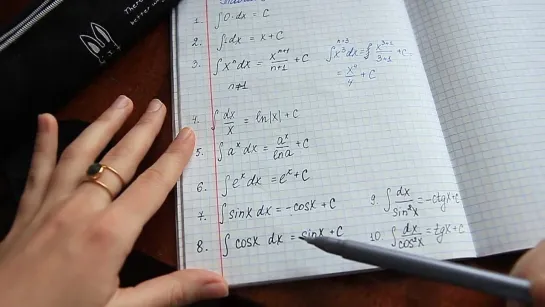 1. ∫0·dx = C
2. ∫1dx = x + C
3. ∫xⁿdx = xⁿ⁺¹/n+1 + C
n≠1
n=3
∫x³dx = ∫ x³⁺¹/3+1 + C
= x⁴/4 + C
4. ∫dx/x = ln|x| + C
5. ∫aˣdx = aˣ/lna + C
6. ∫eˣdx = eˣ + C
7. ∫sinx dx = -cosx + C
8. ∫cosx dx = sinx + C
9. ∫dx/sin²x = -ctgx + C
10. ∫dx/cos²x = tgx + C